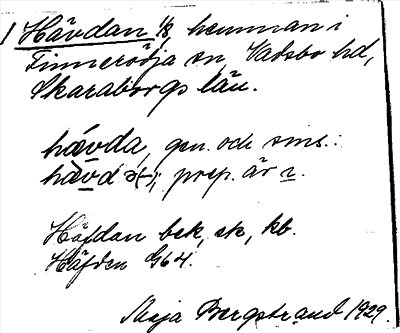 1 Hävdan 1/8 hemman i
Finnerödja sn, Vadsbo hd,
Skaraborgs län.
hävda, gen. och sms.:
hävd-; prep. är i.
Häfdan bek, sk, kb.
Häfden G64.
Maja Bergstrand 1929.